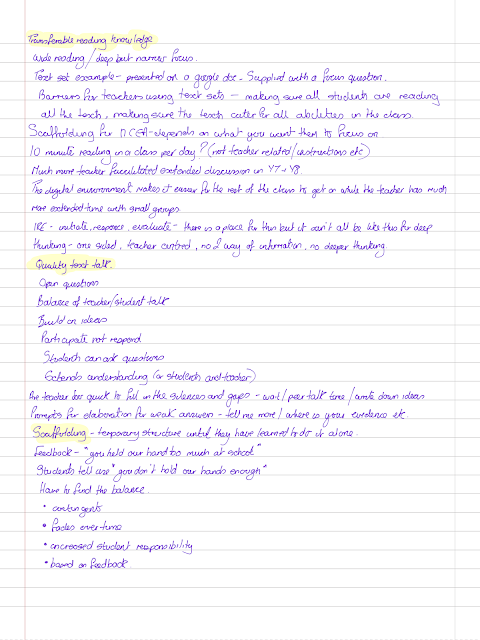 Transferable reading knowledge
Wide reading / deep but narrow focus.
Text set example - presented on a google doc - Supplied with a focus question.
Barriers for teachers using text sets - making sure all students are reading
all the texts, making sure the texts cater for all abilities in the class.
Scaffolding for NCEA - depends on what you want them to focus on
10 minute reading in a class per day? (not teacher related/instructions etc)
Much more teacher facilitated extended discussion in Y7+Y8
The digital environment makes it easier for the rest of the class to get on while the teacher has much
more extended time with small groups
IRE - initiate, response, evaluate - there is a place for this but it can't all be like this for deep
thinking - one sided, teacher centred, no 2 way of information, no deeper thinking.
Quality text talk.
Open questions
Balance of teacher/student talk
Build on ideas
Participate not respond
Students can ask questions
Extends understanding (or students and teacher)
teacher too quick to fill in the silences and gaps - wait / peer talk time / wrote down ideas
Prompts for elaboration for weak answers - tell me more / where is your evidence etc.
Scaffolding - temporary structure until they have learned to do it alone.
Feedback - "you held our hand too much at school"
Students tell use "you don't hold our hands enough"
Have to find the balance.
• contingents
• fades over time
• increased student responsibility
• based on feedback